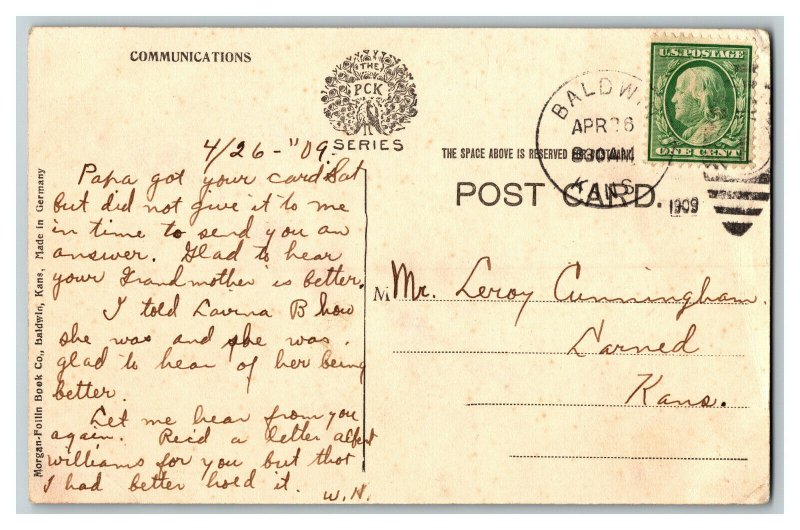 COMMUNICATIONS
THE
PCK
SERIES
U.S. POSTAGE
ONE CENT
BALDWIN
APR 26
830AM
KANS.
1909
THE SPACE ABOVE IS RESERVED FOR
POST CARD.
4/26-"09.
Papa got your card Sat
but did not give it to me
in time to send you an
answer. Glad to hear
your Grandmother is better.
I told Lavina B how
she was and she was
glad to hear of her being
better.
Let me hear from you
again. Rec'd a letter albert
williams for you but thot
I had better hold it.
W.H.
Mr. Leroy Cunningham.
Larned
Kans.
Morgan-Follin Book Co., Baldwin, Kans, Made in Germany